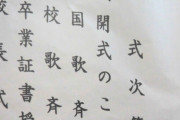 式次第
開式のこ
国歌斉
校歌斉
卒業証書授
校長式